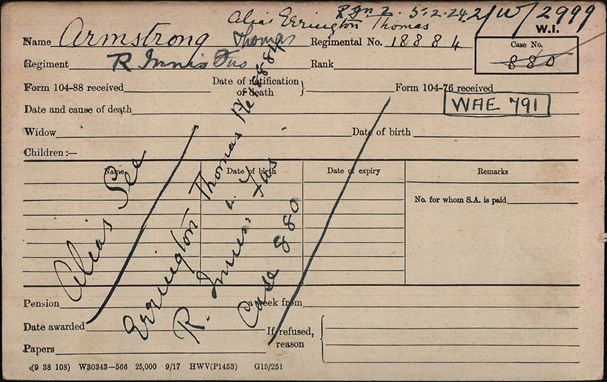 Rgn 2. 5.2.24. 2/W/2999
Alias Errington Thomas
W.I.
Name Armstrong Thomas Regimental No. 18884
Case No.
880
Regiment R Innis Fus Rank
Form 104-88 received Date of notification of death Form 104-76 received
WAE 791
Date and cause of death
Widow Date of birth
Children:—
Name Date of birth Date of expiry Remarks
No. for whom S.A. is paid
Alias See
Errington Thomas 18884
R. Innis Fus
Case 880
Pension a week from
Date awarded If refused, reason
Papers
(9 38 108) W30343—566 25,000 9/17 HWV(P1453) G15/251